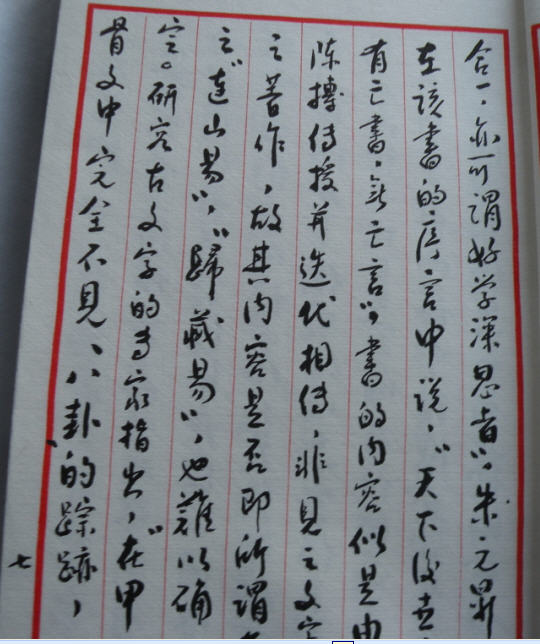 合一，亦可謂好学深思者"。朱元昇
在该書的序言中说，"天下後世
有亡書，無亡言"，書的内容似是由
陈摶传授并迭代相傳，非見之文字
之著作，故其内容是否即所謂
之"連山易"，"歸藏易"，也難以确
定。研究古文字的专家指出，"在甲
骨文中完全不見'八卦'的踪跡，
七